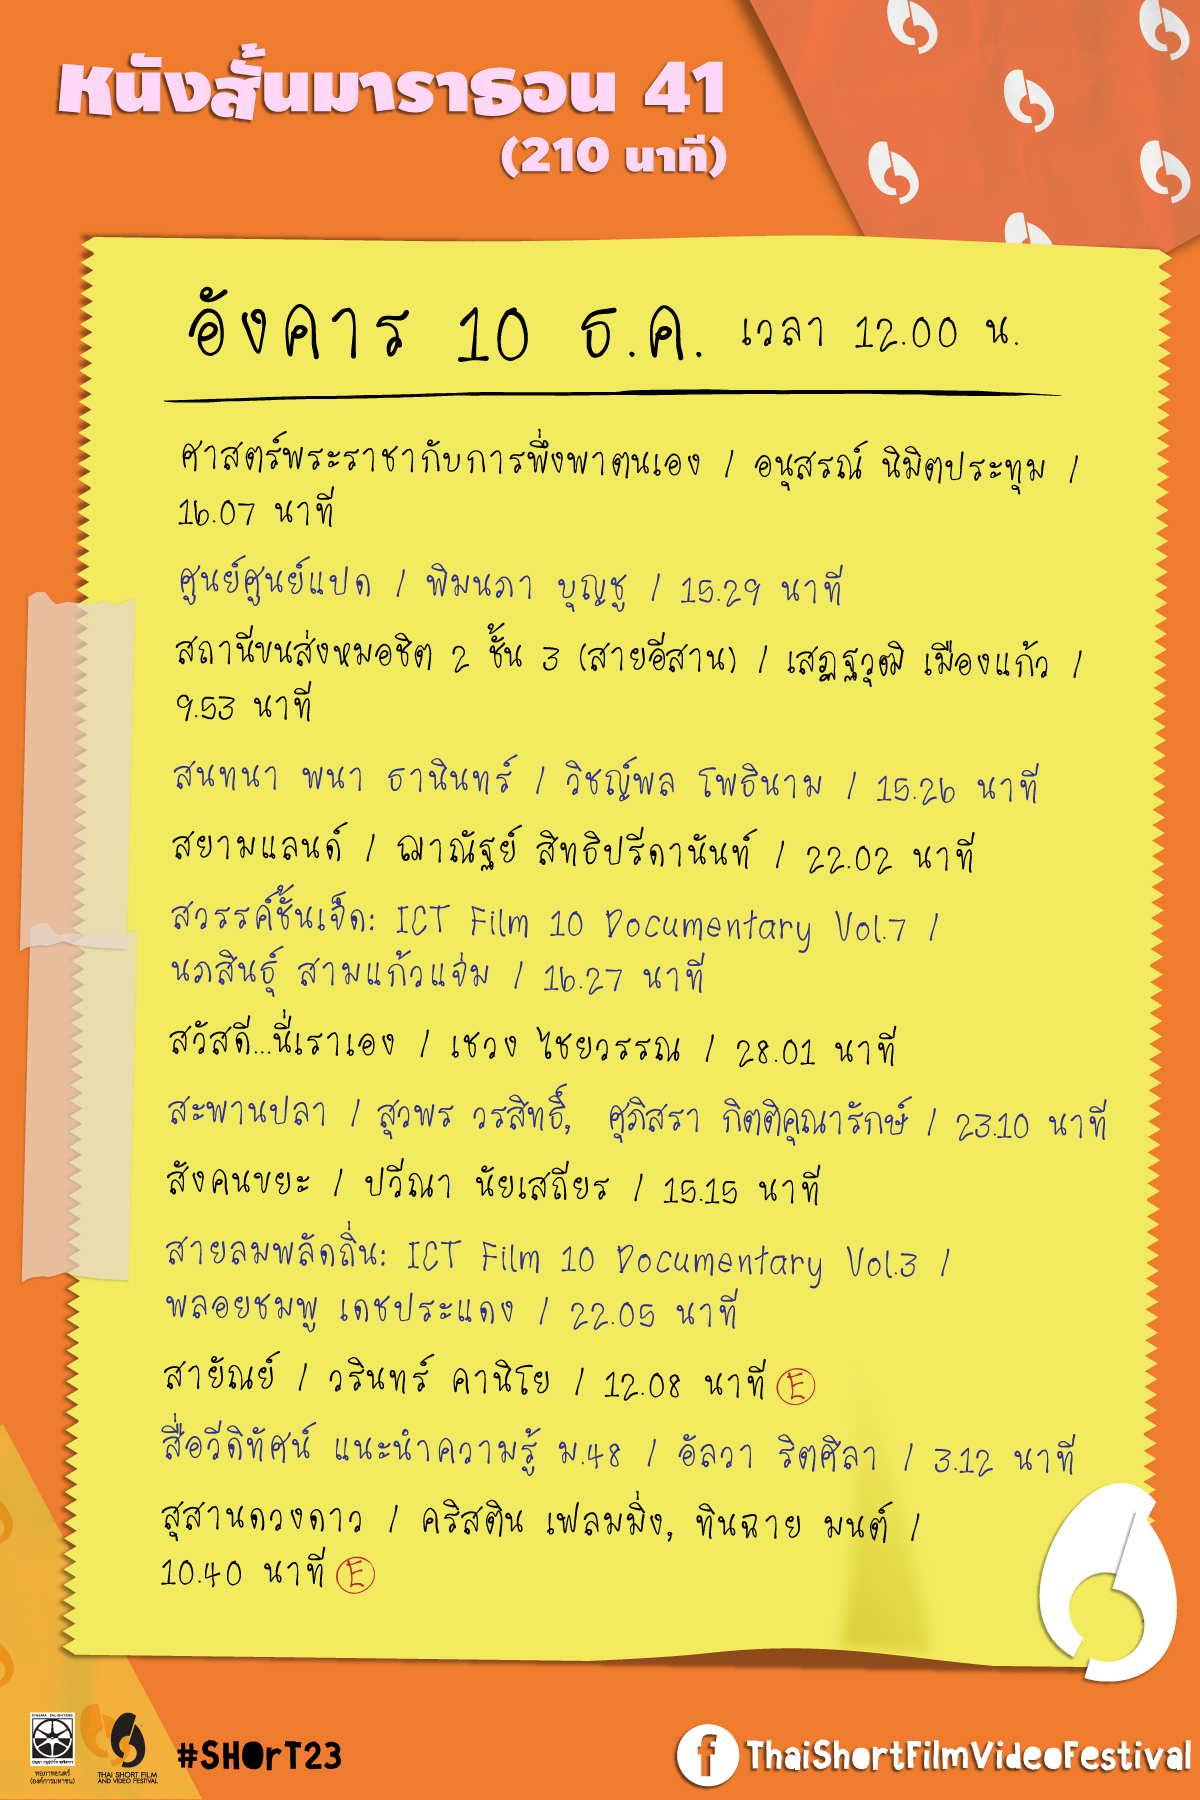 หนังสั้นมาราธอน 41
(210 นาที)
อังคาร 10 ธ.ค. เวลา 12.00 น.
ศาสตร์พระราชากับการพึ่งพาตนเอง / อนุสรณ์ นิมิตประทุม /
16.07 นาที
ศูนย์ศูนย์แปด / พิมนภา บุญชู / 15.29 นาที
สถานีขนส่งหมอชิต 2 ชั้น 3 (สายอีสาน) / เสฏฐวุฒิ เมืองแก้ว /
9.53 นาที
สนทนา พนา ธานินทร์ / วิชญ์พล โพธินาม / 15.26 นาที
สยามแลนด์ / ฌาณัฐย์ สิทธิปรีดานันท์ / 22.02 นาที
สวรรค์ชั้นเจ็ด: ICT Film 10 Documentary Vol.7 /
นภสินธุ์ สามแก้วแจ่ม / 16.27 นาที
สวัสดี...นี่เราเอง / เชวง ไชยวรรณ / 28.01 นาที
สะพานปลา / สุวพร วรสิทธิ์, ศุภิสรา กิตติคุณารักษ์ / 23.10 นาที
สังคนขยะ / ปวีณา นัยเสถียร / 15.15 นาที
สายลมพลัดถิ่น: ICT Film 10 Documentary Vol.3 /
พลอยชมพู เดชประแดง / 22.05 นาที
สายัณย์ / วรินทร์ คานิโย / 12.08 นาที E
สื่อวีดิทัศน์ แนะนำความรู้ ม.48 / อัลวา ริตศิลา / 3.12 นาที
สุสานดวงดาว / คริสติน เฟลมมิ่ง, ทินฉาย มนต์ /
10.40 นาที E
CINEMA ENLIGHTENS
หอภาพยนตร์
(องค์การมหาชน)
THAI SHORT FILM
AND VIDEO FESTIVAL
#SHOrT23
f ThaiShortFilmVideoFestival